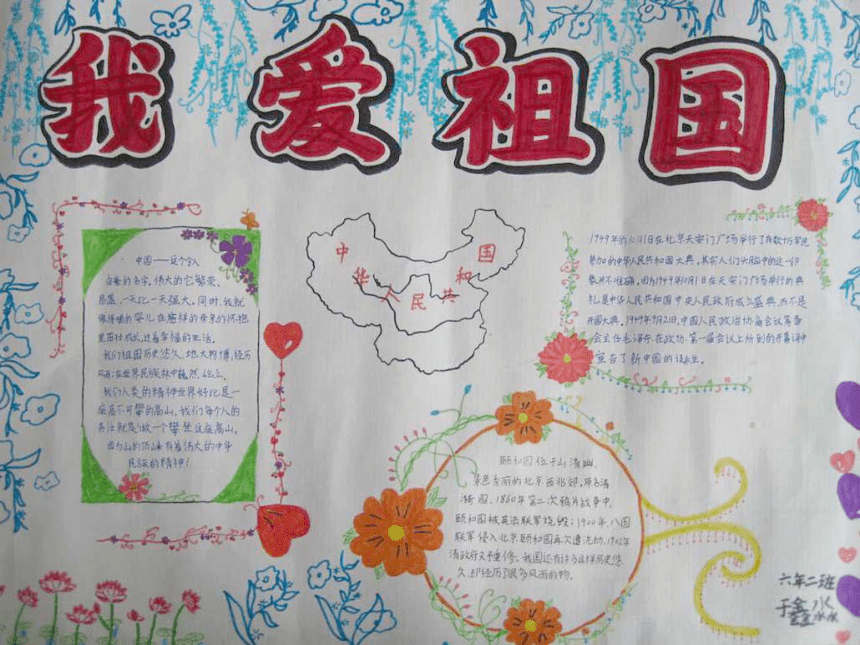 我爱祖国
中华人民共和国
中国——这个令人
自豪的名字,伟大的它繁荣、
昌盛,一天比一天强大。同时,我就
像得哺的婴儿在慈祥的母亲的怀抱
里茁壮成长,过着幸福的生活。
我们祖国历史悠久,地大物博,经历
风雨,在世界民族林中巍然屹立。
我们人类的精神世界好比是一
座高不可攀的高山,我们每个人的
责任就是做一个攀登这座高山,
因为山的顶峰有着伟大的中华
民族的精神!
1949年的10月1日在北京天安门广场举行了有数十万军民
参加的中华人民共和国大典。其实人们头脑中的这一印
象并不准确。因为1949年10月1日在天安门广场举行的典
礼是中华人民共和国中央人民政府成立盛典,而不是
开国大典。1949年9月21日,中国人民政治协商会议筹备
会主任毛泽东在政协第一届会议上所致的开幕词中
宣告了新中国的诞生。
颐和园位于山清幽、
景色秀丽的北京西北郊,原名清
漪园,1860年第二次鸦片战争中,
颐和园被英法联军烧毁;1900年,八国
联军侵入北京,颐和园再次遭洗劫,1902年
清政府又重修。我国还有许多这样历史悠
久却经历了很多风雨的物。
六年二班
于鑫淼